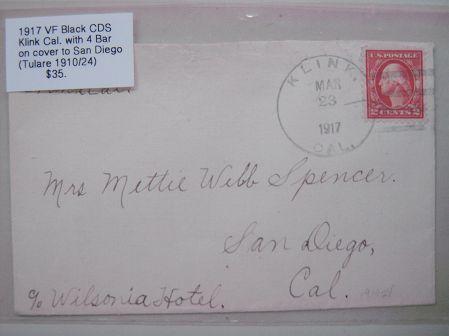 1917 VF Black CDS
Klink Cal. with 4 Bar
on cover to San Diego
(Tulare 1910/24)
$35.
KLINK,
MAR
23
1917
CAL.
U.S. POSTAGE
2 CENTS 2
Mrs Mettie Webb Spencer.
San Diego,
Cal.
c/o Wilsonia Hotel.